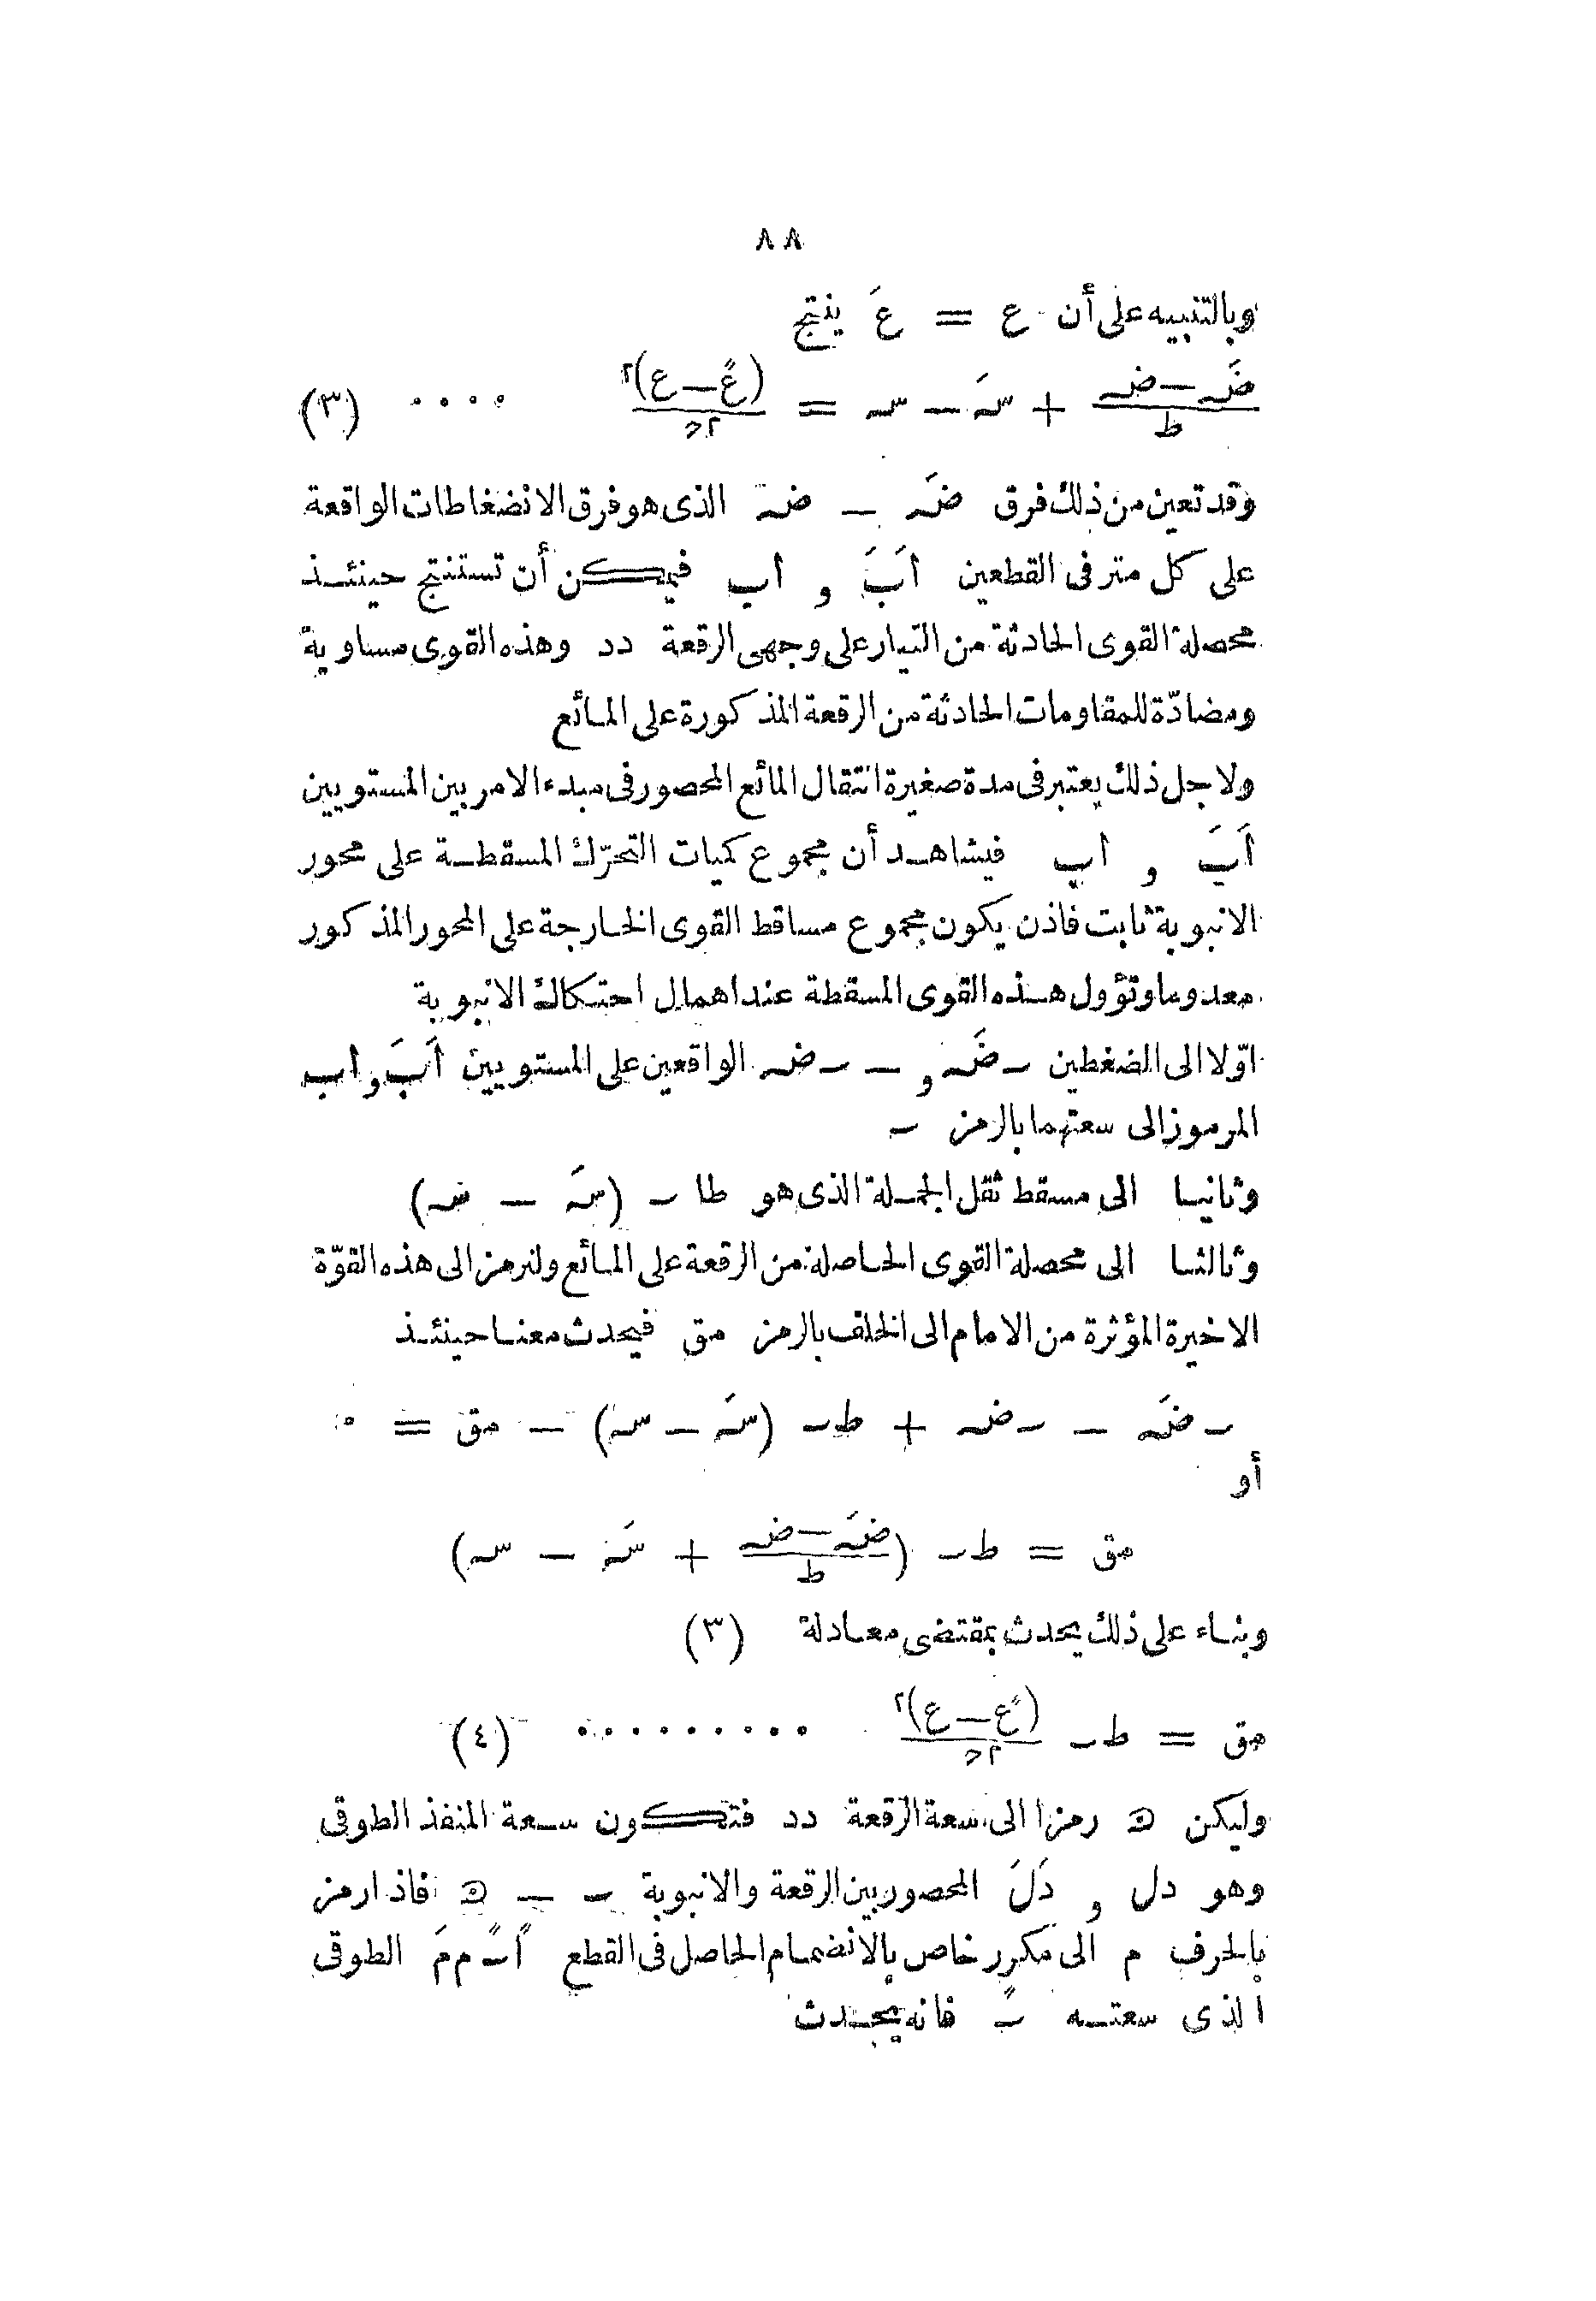 ٨٨
وبالتنبيه على أن ع = عَ ينتج
(ضَہ − ضہ)/ط + سَہ − سہ = (عً − ع)٢/٢ح .... (٣)
وقد تعين من ذلك فرق ضَہ − ضہ الذى هو فرق الانضغاطات الواقعة
على كل متر فى القطعين اَبَ و اب فيمكن أن تستنتج حينئذ
محصلة القوى الحادثة من التيار على وجهى الرقعة دد وهذه القوى مساوية
ومضادّة للمقاومات الحادثة من الرقعة المذكورة على المائع
ولاجل ذلك يعتبر فى مدة صغيرة انتقال المائع المحصور فى مبدء الامر بين المستويين
اَبَ و اب فيشاهد أن مجموع كميات التحرّك المسقطة على محور
الانبوبة ثابت فاذن يكون مجموع مساقط القوى الخارجة على المحور المذكور
معدوما وتؤول هذه القوى المسقطة عند اهمال احتكاك الانبوبة
اوّلا الى الضغطين ـ ضَہ و − ـ ضہ الواقعين على المستويين اَبَ و اب
المرموز الى سعتهما بالرمز ـ
وثانيا الى مسقط ثقل الجملة الذى هو طا ـ (سَہ − سہ)
وثالثا الى محصلة القوى الحاصلة من الرقعة على المائع ولنرمز الى هذه القوّة
الاخيرة المؤثرة من الامام الى الخلف بالرمز مق فيحدث معنا حينئذ
ـ ضَہ − ـ ضہ + ط ـ (سَہ − سہ) − مق = ٠
أو
مق = ط ـ ((ضَہ − ضہ)/ط + سَہ − سہ)
وبناء على ذلك يحدث بمقتضى معادلة (٣)
مق = ط ـ (عً − ع)٢/٢ح ......... (٤)
وليكن ه رمزا الى سعة الرقعة دد فتكون سعة المنفذ الطوقى
وهو دل و دَلَ المحصور بين الرقعة والانبوبة ـ − ه فاذا رمز
بالحرف م الى مكرر خاص بالانضمام الحاصل فى القطع اً ـً م مَ الطوقى
الذى سعته ـً فانه يحدث